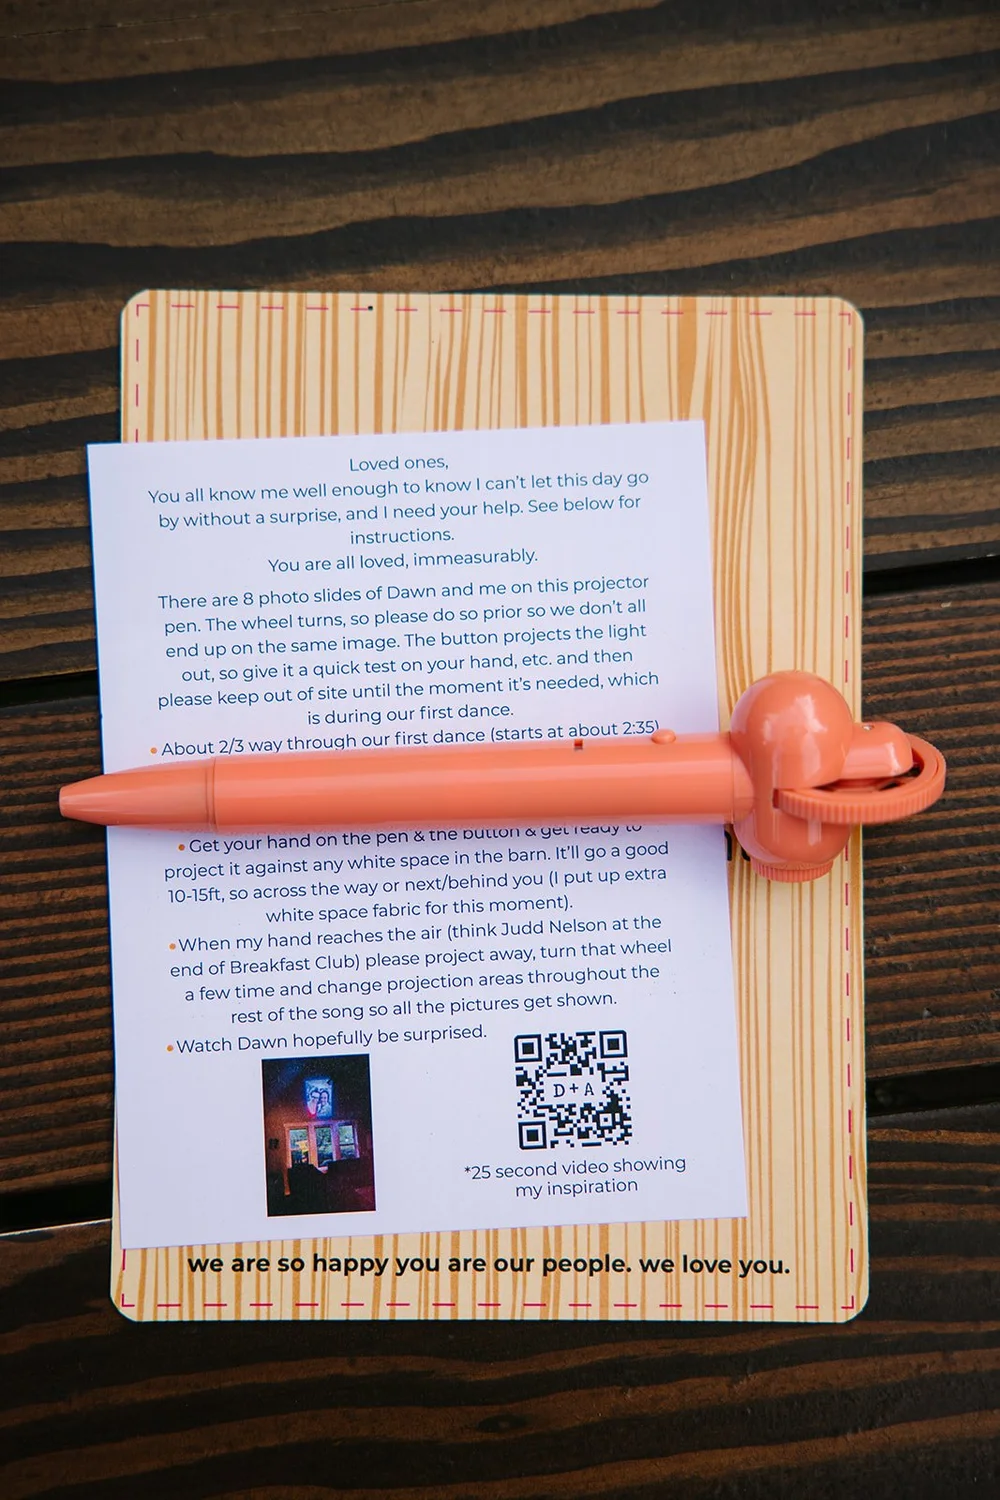 Loved ones,
You all know me well enough to know I can't let this day go
by without a surprise, and I need your help. See below for
instructions.
You are all loved, immeasurably.
There are 8 photo slides of Dawn and me on this projector
pen. The wheel turns, so please do so prior so we don't all
end up on the same image. The button projects the light
out, so give it a quick test on your hand, etc. and then
please keep out of site until the moment it's needed, which
is during our first dance.
• About 2/3 way through our first dance (starts at about 2:35)
• Get your hand on the pen & the button & get ready to
project it against any white space in the barn. It'll go a good
10-15ft, so across the way or next/behind you (I put up extra
white space fabric for this moment).
• When my hand reaches the air (think Judd Nelson at the
end of Breakfast Club) please project away, turn that wheel
a few time and change projection areas throughout the
rest of the song so all the pictures get shown.
• Watch Dawn hopefully be surprised.
D+A
*25 second video showing
my inspiration
we are so happy you are our people. we love you.